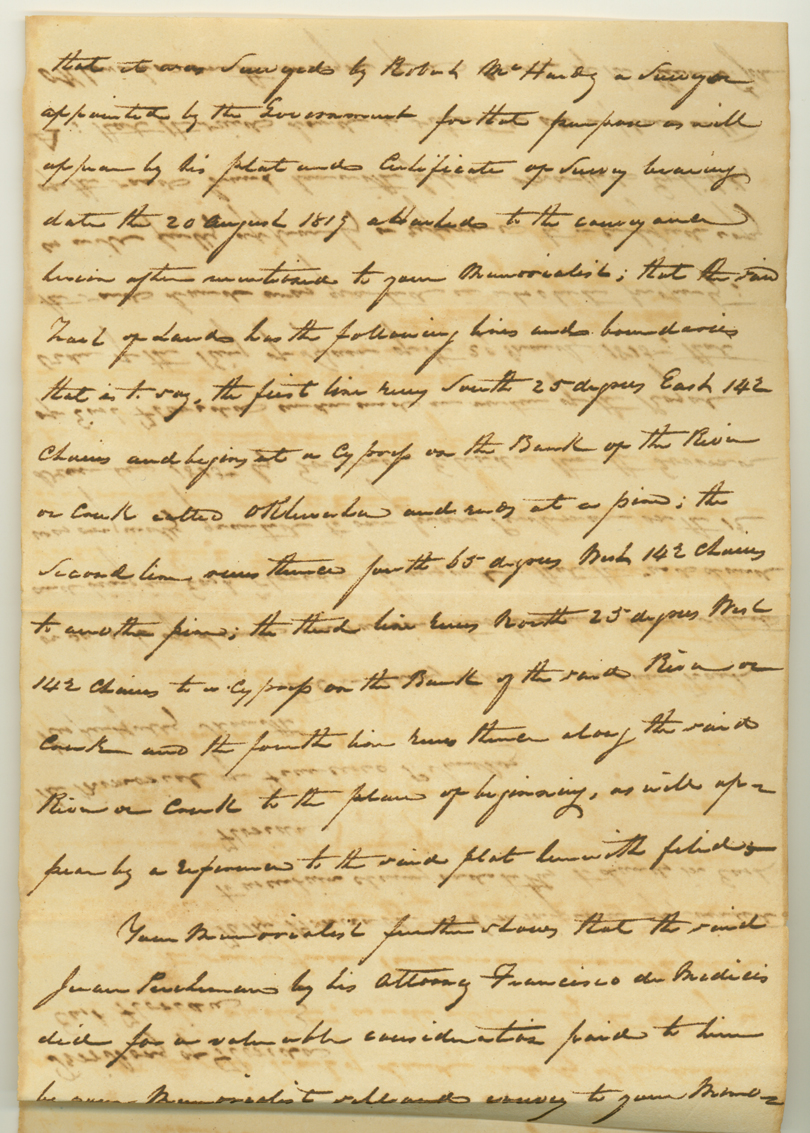 that it was Surveyed by Robert McHardy a Surveyor
appointed by the Government for that purpose as will
appear by his plat and Certificate of Survey bearing
date the 20 August 1819 attached to the conveyance
herein after mentioned to your Memorialist; that the said
Tract of Land has the following lines and boundaries
that is to say, the first line runs South 25 degrees East 142
Chains and begins at a Cypress on the Bank of the River
or Creek called Oklawaha and ends at a pine; the
second line runs thence South 65 degrees West 142 Chains
to another pine; the third line runs North 25 degrees West
142 Chains to a Cypress on the Bank of the said River or
Creek and the fourth line runs thence along the said
River or Creek to the place of beginning, as will ap=
pear by a reference to the said plat herewith filed
Your Memorialist further shows that the said
Juan Percheman by his Attorney Francisco de Medicis
did for a valuable consideration paid to him
by your Memorialist sell and convey to your Memo=